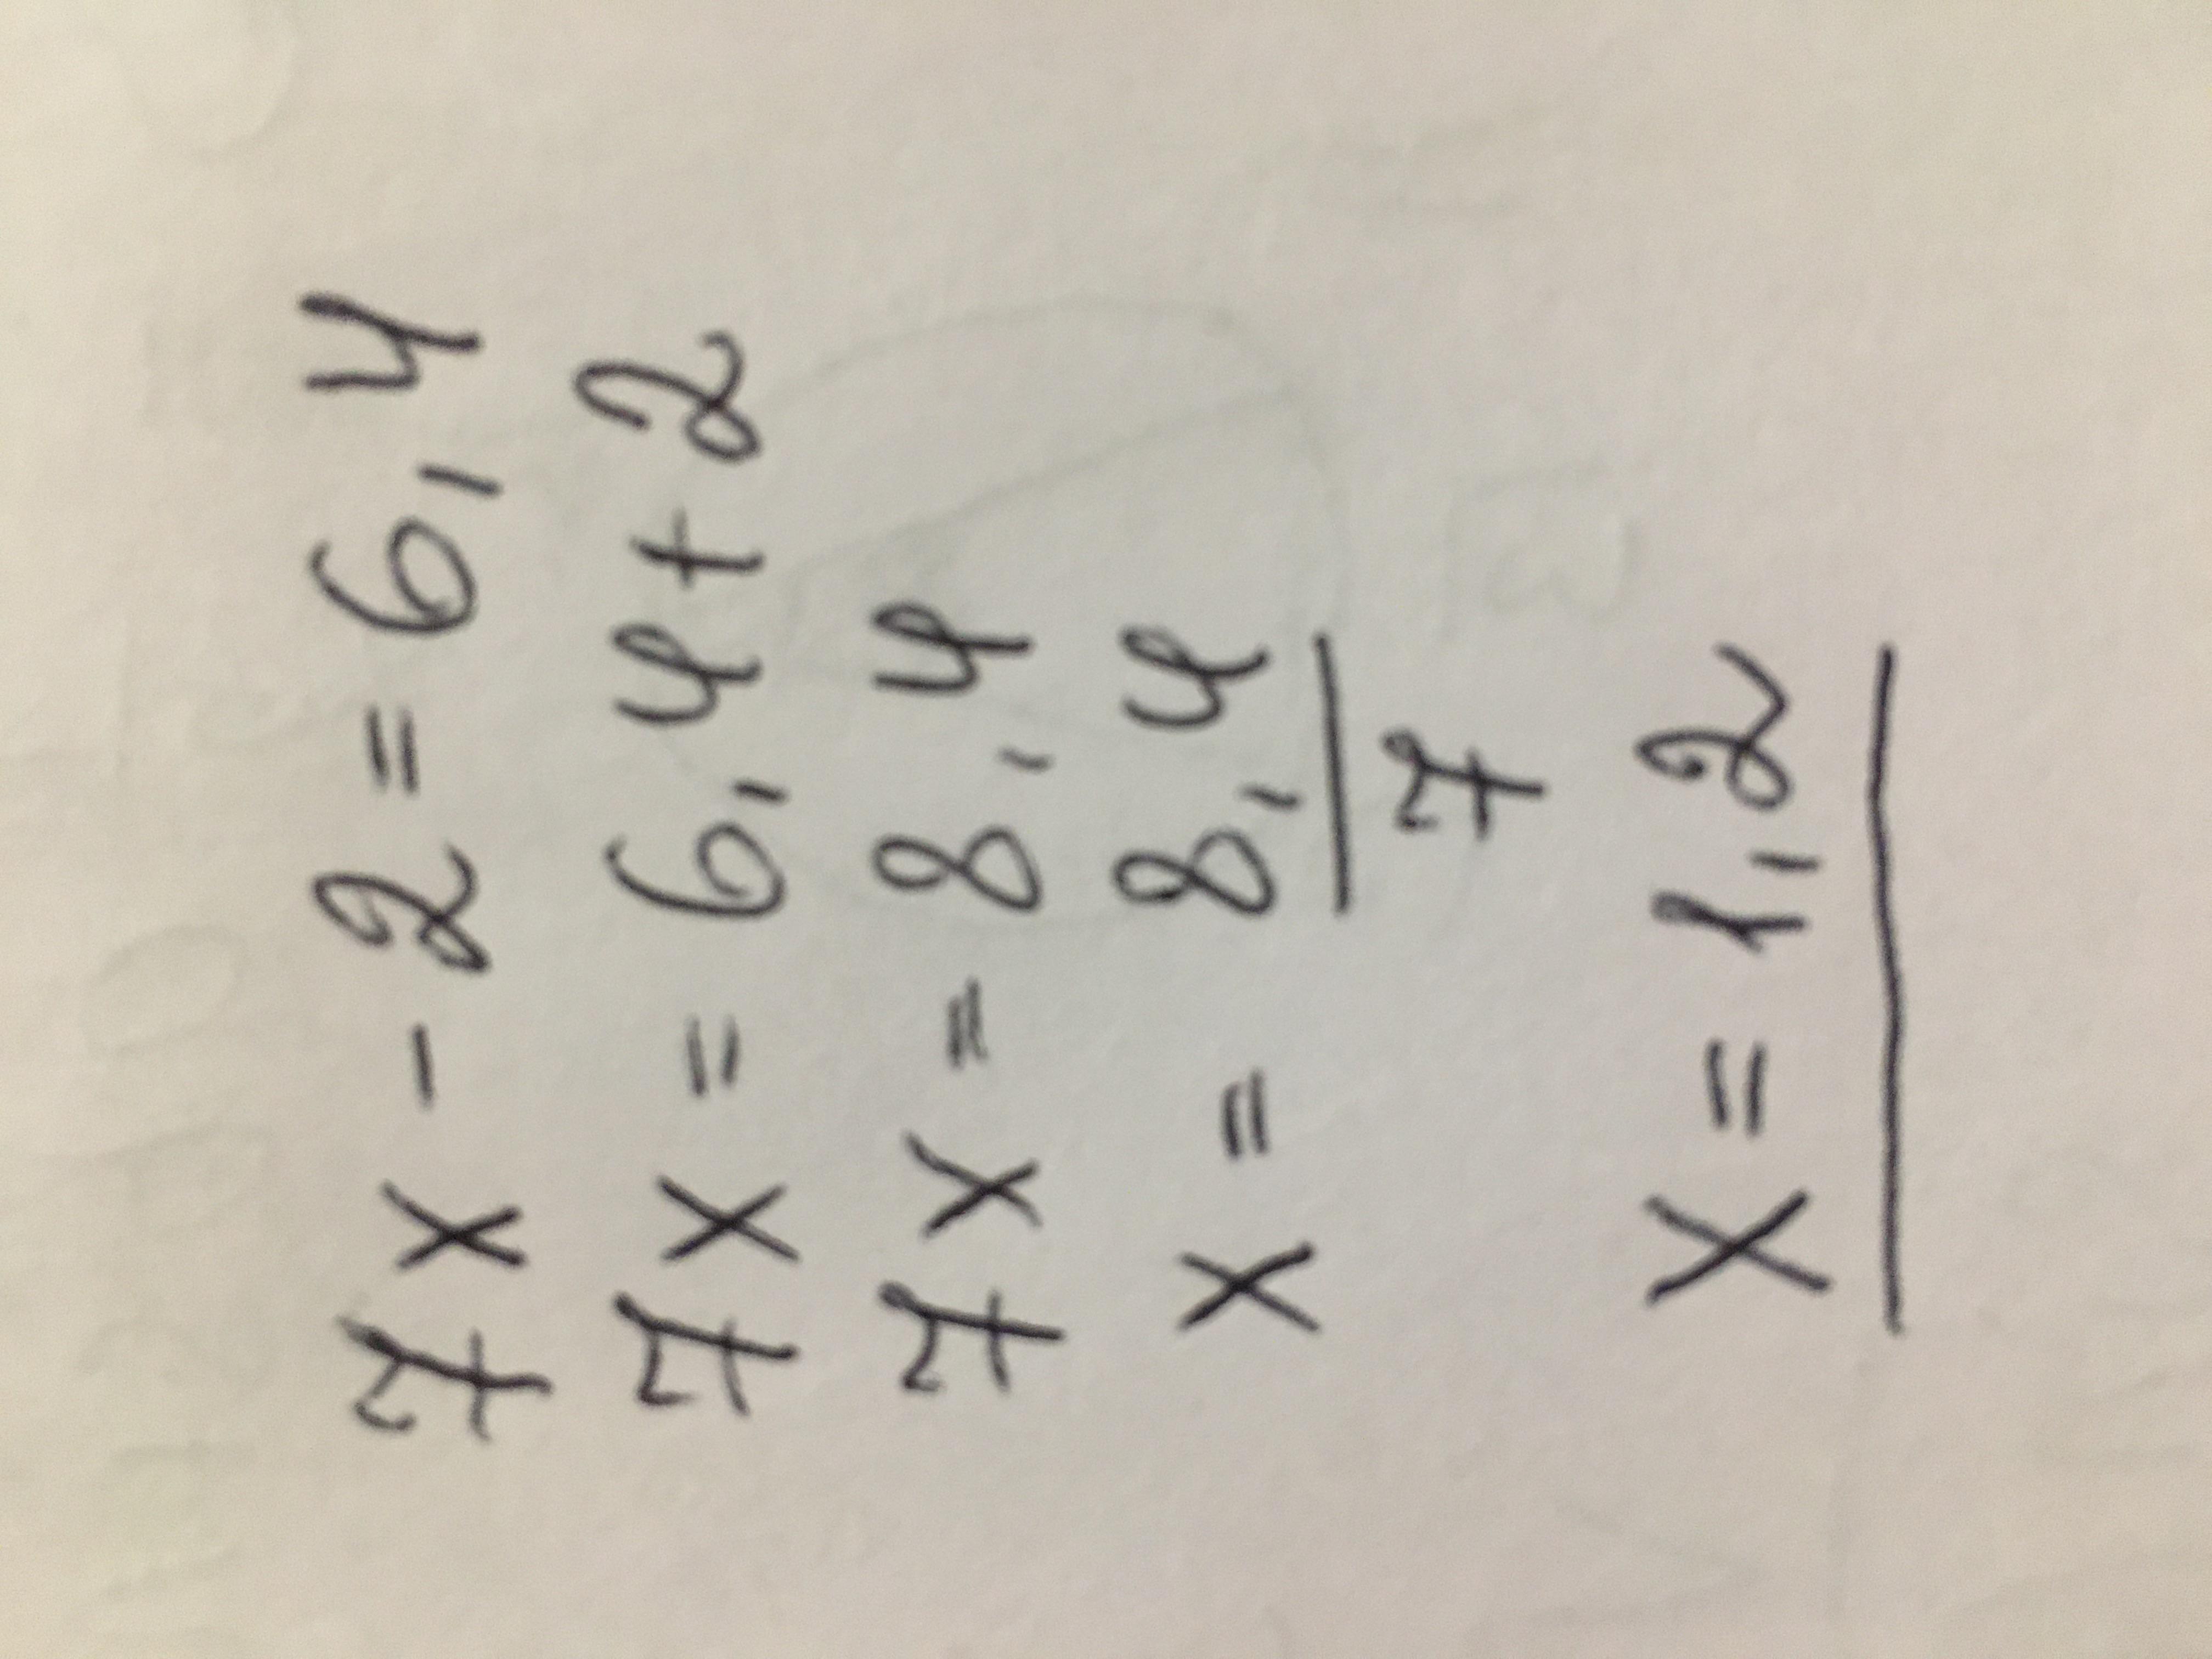 7x - 2 = 6,4
7x = 6,4 + 2
7x = 8,4
x = 8,4
7
x = 1,2